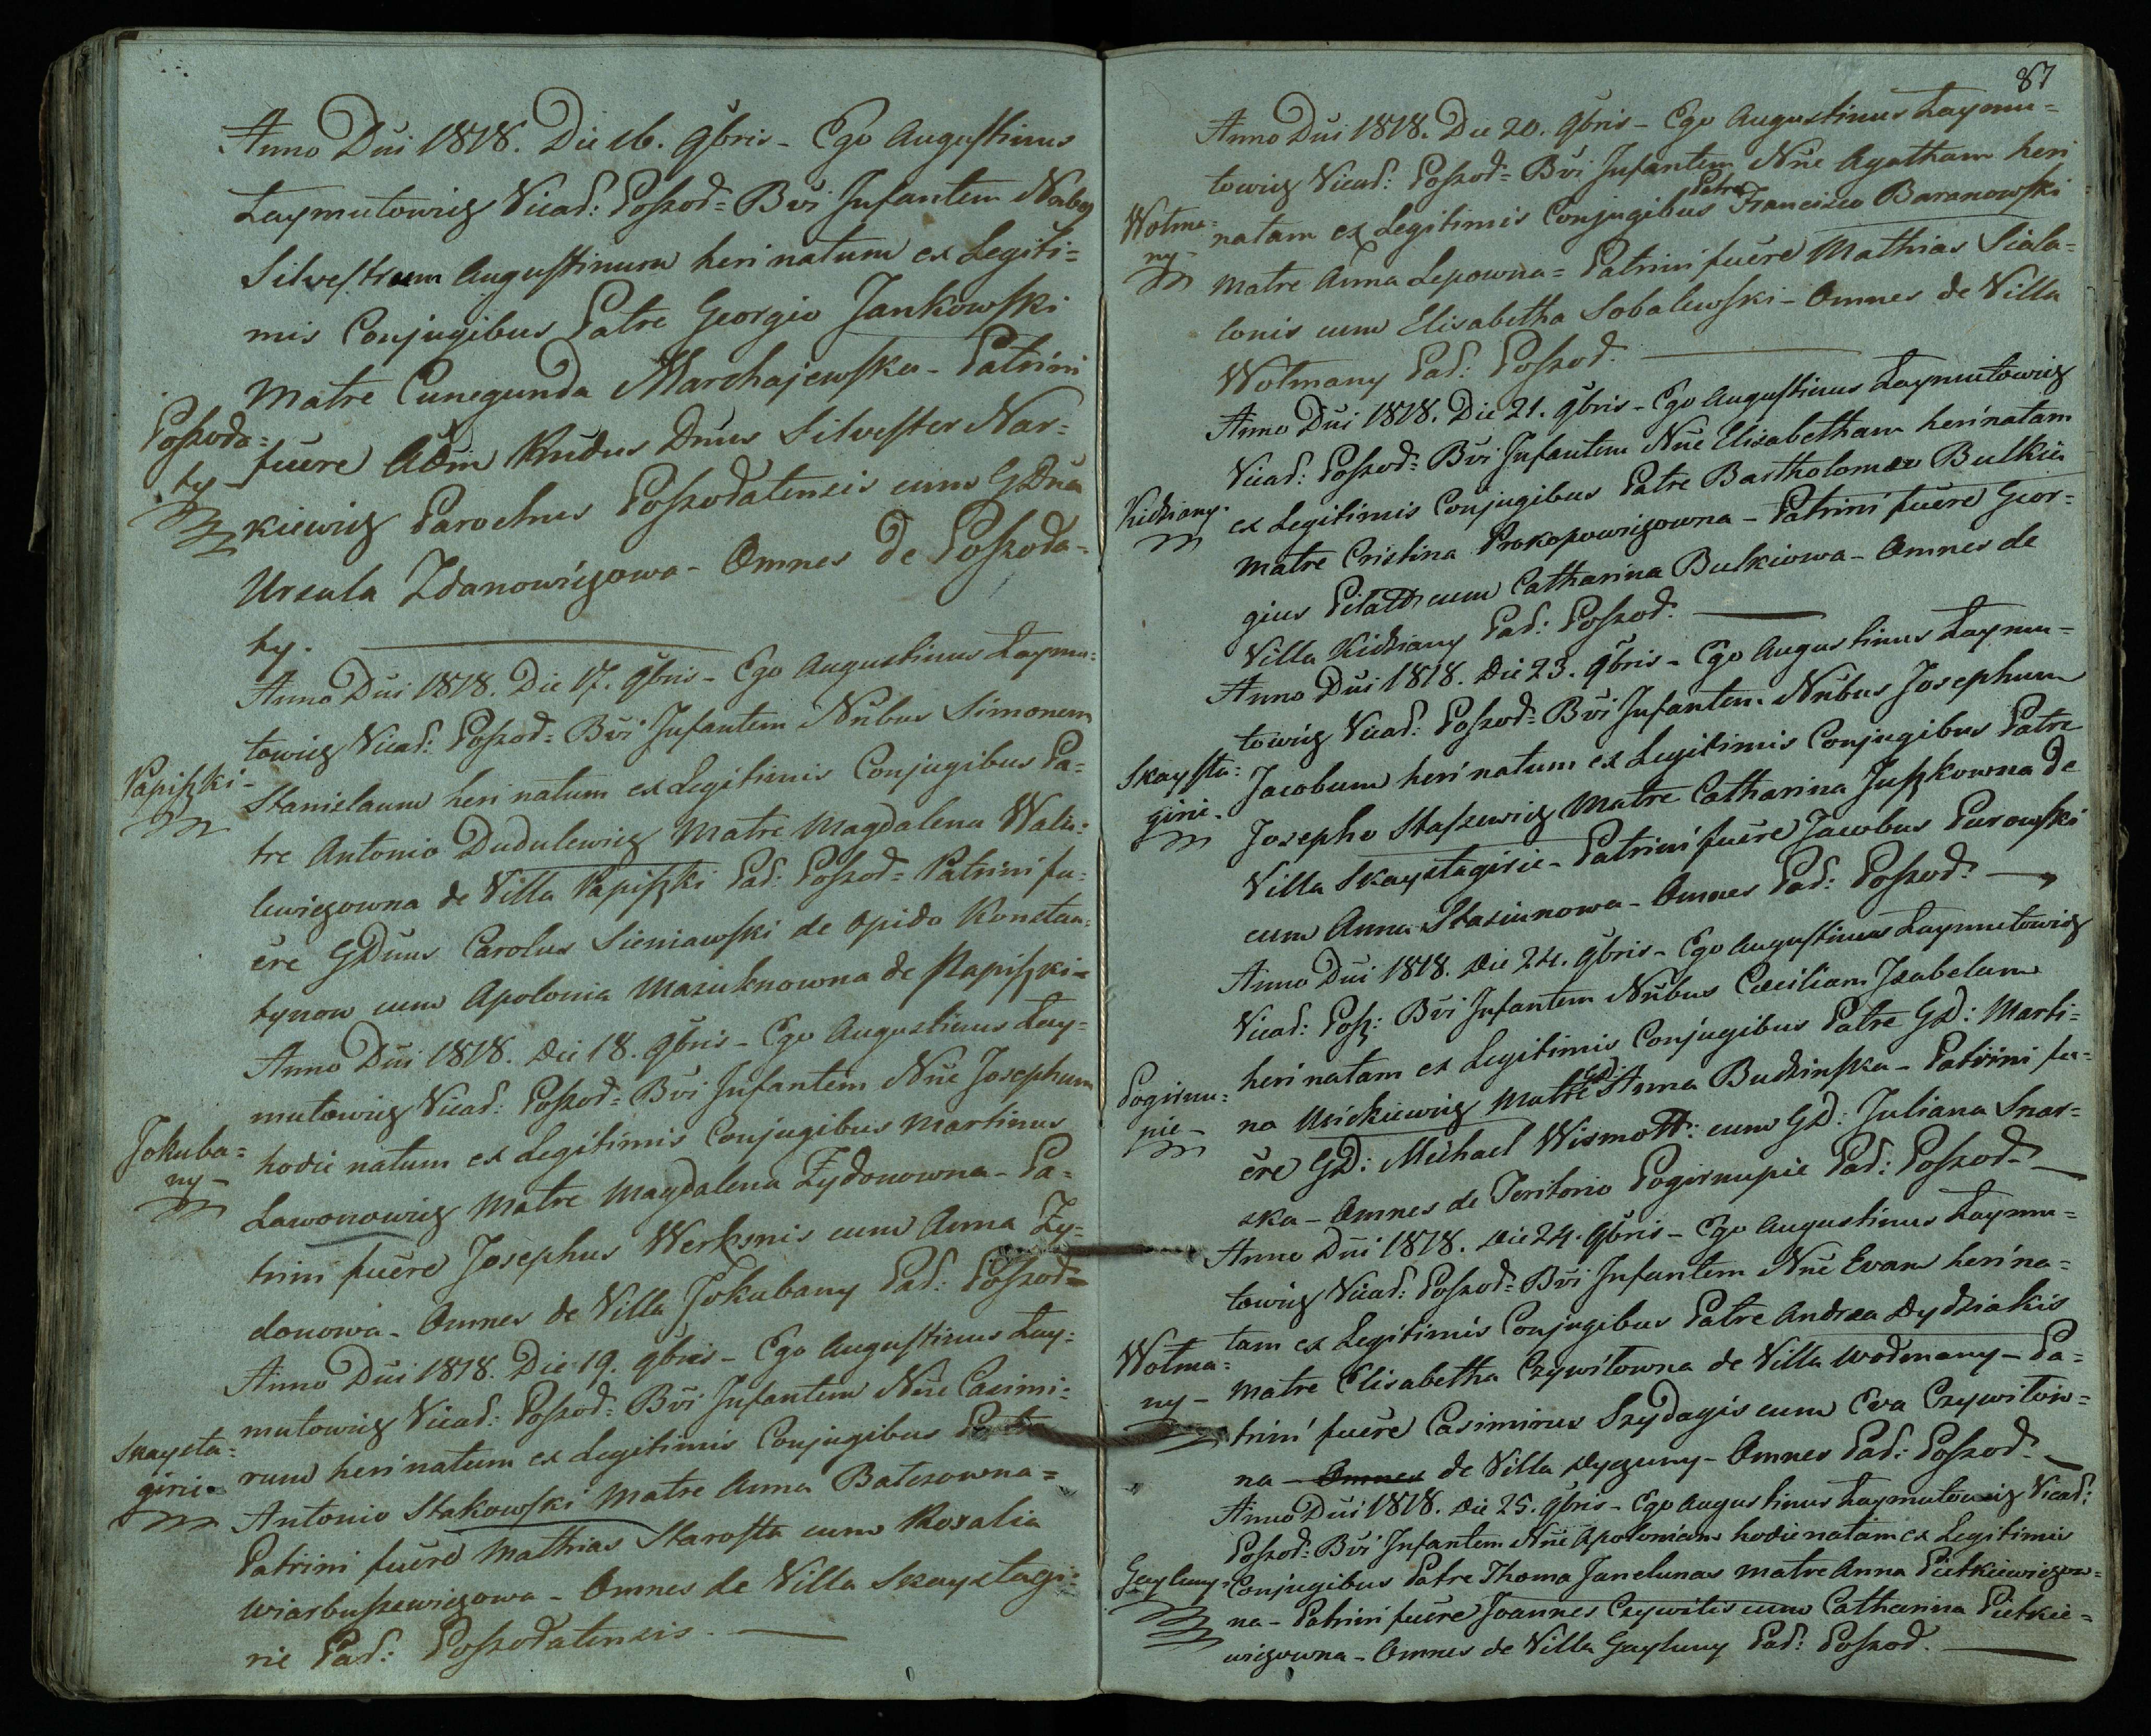 Anno Dńi 1818. Die 16. 9bris - Ego Augustinus
Laymutowicz Vicad: Poszod= Bvi Infantem Nnbus
Silvestrum Augustinum heri natum ex Legiti=
mis Conjugibus Patre Georgio Jankowski
Matre Cunegunda Marchajewska - Patrini
Poszoda=
ty
fuere Adm Rndus Dnus Silvester Nar=
kiewicz Parochus Poszodatensis cum GDna
Ursula Zdanowiczowa - Omnes de Poszoda-
ty.
Anno Dńi 1818. Die 17. 9bris - Ego Augustinus Laymu=
towicz Vicad: Poszod= Bvi Infantem Nnbus Simonem
Papiszki-
Stanislaum heri natum ex Legitimis Conjugibus Pa=
tre Antonio Dudulewicz Matre Magdalena Wali=
lewiczowna de Villa Papiszki Pad: Poszod= Patrini fu=
ere GDnus Carolus Sieniawski de opido Konstan=
tynow cum Apolonia Maziuknowna de Papiszki-
Anno Dńi 1818. Die 18. 9bris - Ego Augustinus Lay=
mutowicz Vicad: Poszod= Bvi Infantem Nne Josephum
Jokuba=
ny-
hodie natum ex Legitimis Conjugibus Martinus
Lawonowicz Matre Magdalena Zydonowna - Pa=
trini fuere Josephus Werksnis cum Anna Zy=
donowa - Omnes de Villa Jokubany Pad: Poszod=
Anno Dńi 1818. Die 19. 9bris - Ego Augustinus Lay=
mutowicz Vicad: Poszod= Bvi Infantem Nne Casimi=
Skaysta=
girie
rum heri natum ex Legitimis Conjugibus Patre
Antonio Stakowski Matre Anna Batezowna=
Patrini fuere Mathias Starosta cum Rosalia
Wiarbuszewiczowa - Omnes de Villa Skaystagi=
rie Pad: Poszodatensis.
87
Anno Dńi 1818. Die 20. 9bris - Ego Augustinus Laymu=
towicz Vicad: Poszod= Bvi Infantem Nne Agatham heri
Wotma=
ny-
natam ex Legitimis Conjugibus Patre Francisco Baranowski
Matre Anna Lepowna= Patrini fuere Mathias Siala=
lonis cum Elisabetha Sobalewski - Omnes de Villa
Wotmany Pad: Poszod.
Anno Dńi 1818. Die 21. 9bris - Ego Augustinus Laymutowicz
Vicad: Poszod= Bvi Infantem Nne Elisabetham heri natam
Kidziany.
ex Legitimis Conjugibus Patre Bartholomæo Bulkis
Matre Cristina Prokopowiczowna - Patrini fuere Geor=
gius Pilatt cum Catharina Bulkiowa - Omnes de
Villa Kidziany Pad: Poszod.
Anno Dńi 1818. Die 23. 9bris - Ego Augustinus Laymu=
towicz Vicad: Poszod= Bvi Infantem Nnbus Josephum
Skaysta=
girie.
Jacobum heri natum ex Legitimis Conjugibus Patre
Josepho Staszewicz Matre Catharina Juszkowna de
Villa Skaystagirie - Patrini fuere Jacobus Purowski
cum Anna Stasiunowa - Omnes Pad: Poszod.
Anno Dńi 1818. Die 24. 9bris - Ego Augustinus Laymutowicz
Vicad: Posz: Bvi Infantem Nnbus Cæciliam Isabelam
heri natam ex Legitimis Conjugibus Patre GD: Marti=
Pogirnu=
pie-
no Mickiewicz Matre GD: Anna Budzinska - Patrini fu=
ere GD: Michael Wismott: cum GD: Juliana Snar=
ska - Omnes de Teritorio Pogirnupie Pad: Poszod.
Anno Dńi 1818. Die 24. 9bris - Ego Augustinus Laymu=
towicz Vicad: Poszod= Bvi Infantem Nne Evam heri na=
tam ex Legitimis Conjugibus Patre Andrea Dydziakis
Wotma=
ny-
Matre Elisabetha Czywitowna de Villa Wodmany - Pa=
trini fuere Casimirus Szydagis cum Eva Czywitow=
na - Omnes de Villa Dyguny - Omnes Pad: Poszod.
Anno Dńi 1818. Die 25. 9bris - Ego Augustinus Laymutowicz Vicad:
Poszod= Bvi Infantem Nne Apoloniam hodie natam ex Legitimis
Gayluny.
Conjugibus Patre Thoma Janelunas Matre Anna Pietkiewiczow=
na - Patrini fuere Joannes Czywitis cum Catharina Pietkie=
wiczowna - Omnes de Villa Gayluny Pad: Poszod.